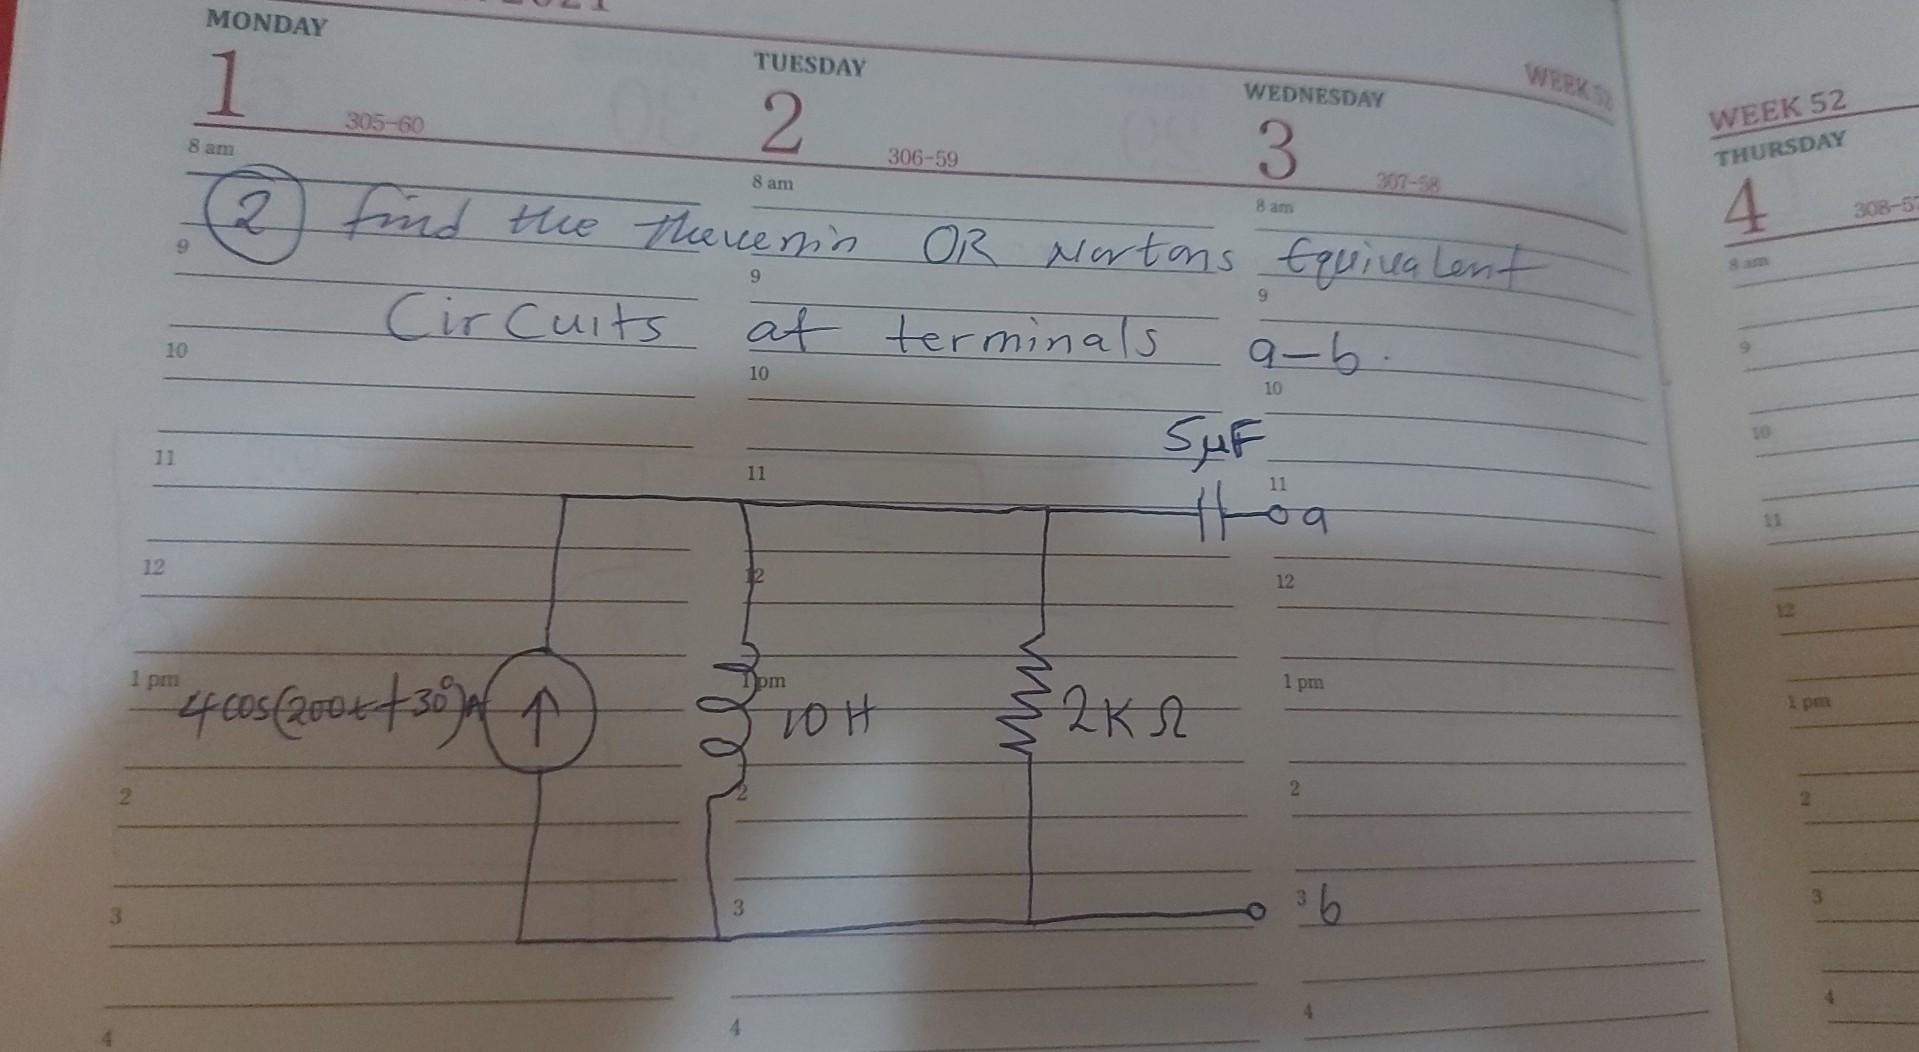 2021
MONDAY
1
305-60
TUESDAY
2
306-59
WEDNESDAY
3
307-58
WEEK 52
WEEK 52
THURSDAY
4
308-57
8 am
8 am
8 am
8 am
② find the thevenin OR Nortons Equivalent
9
9
9
9
Circuits at terminals a-b.
10
10
10
10
5μF
11
11
11
11
a
12
12
12
12
1 pm
1 pm
1 pm
1 pm
4cos(200t+30°)A
10H
2KΩ
2
2
2
2
3
3
3
3
b
4
4
4
4